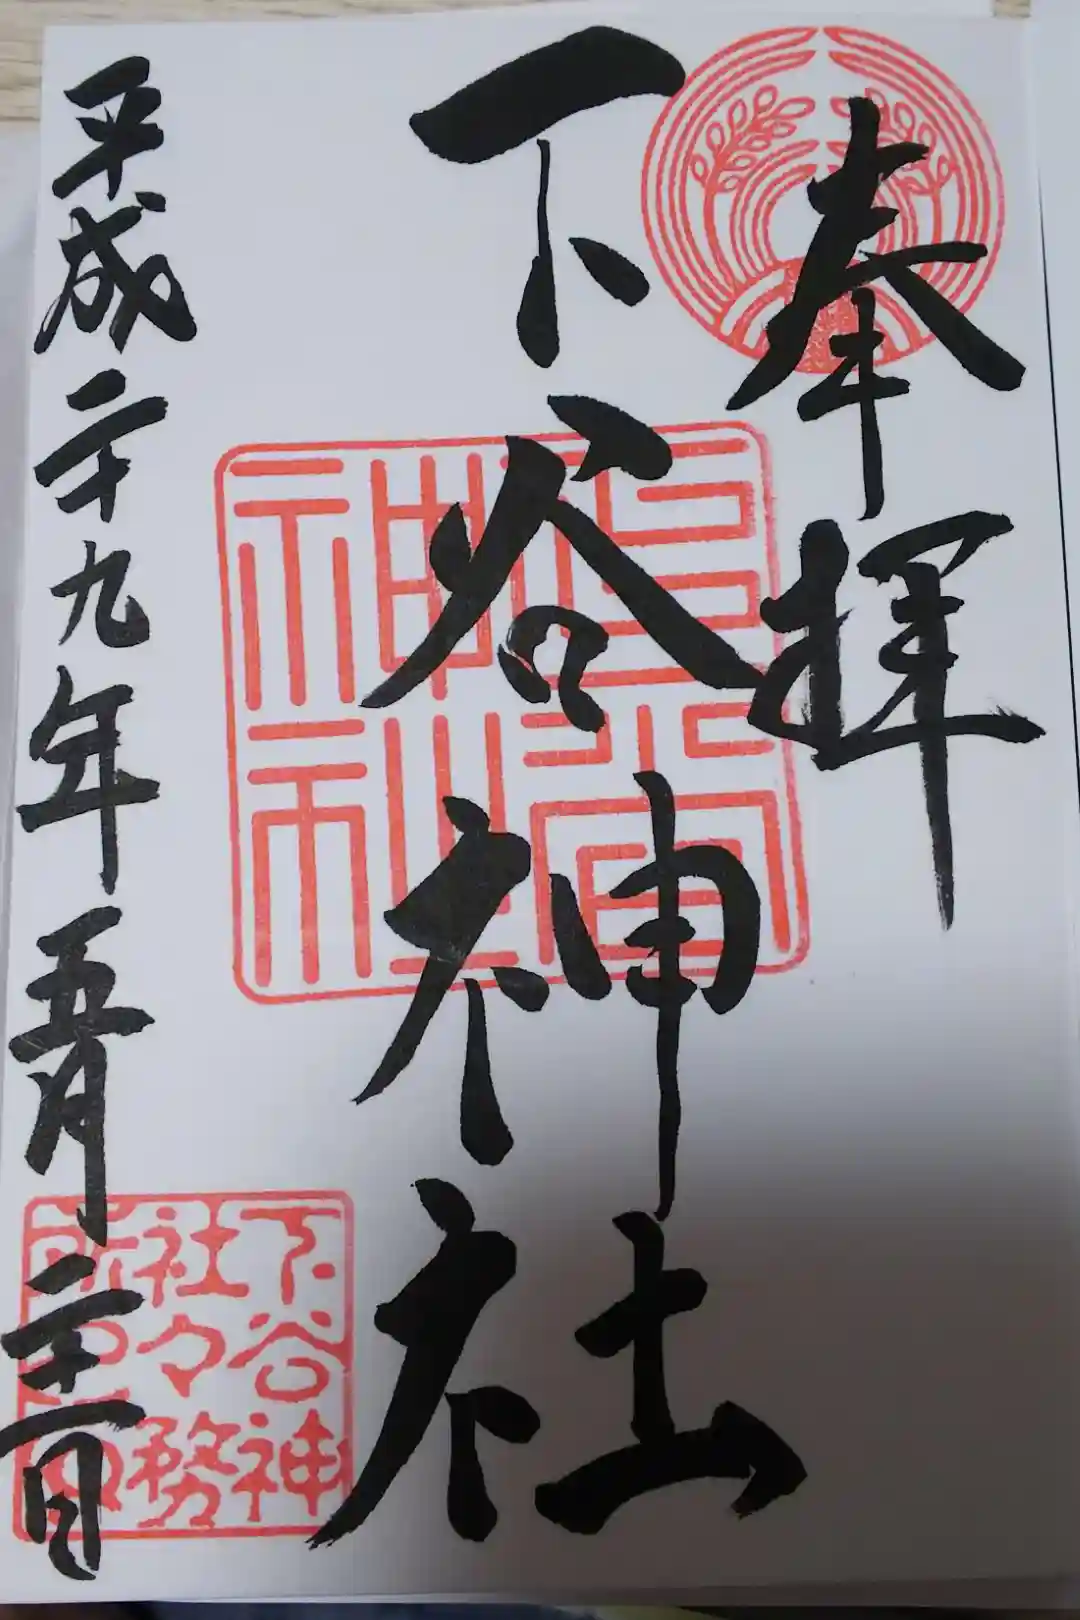 奉拝
下谷神社
平成二十九年五月二十一日
下谷神
社々務
所之印